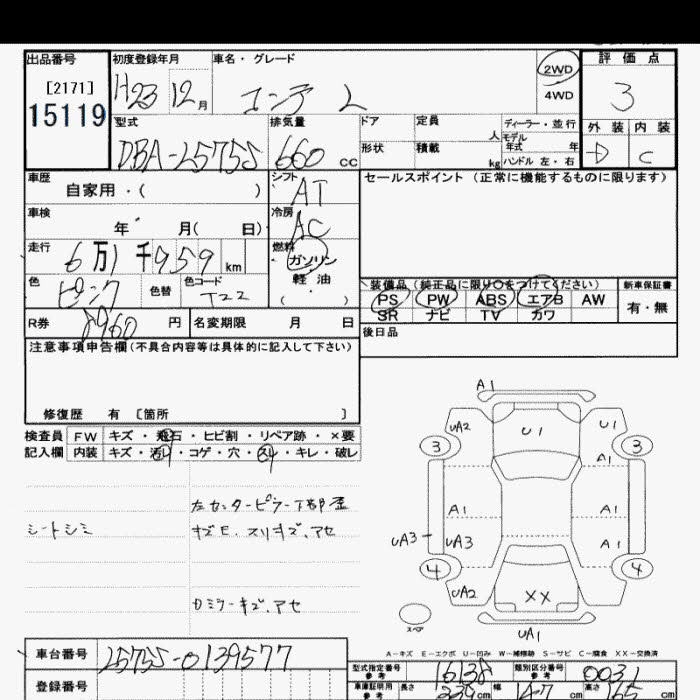 出品番号 初度登録年月 車名・グレード 2WD 評価点
[2171] H23 12月 コンテ L 4WD 3
15119
型式 排気量 ドア 定員 人 ディーラー・並行 外装 内装
DBA-L575S 660cc 形状 積載 kg モデル年式 年 D C
ハンドル 左・右
車歴 自家用・( ) シフト AT セールスポイント(正常に機能するものに限ります)
車検 年 月( 日) 冷房 AC
走行 6万1千959km 燃料 ガソリン
軽油
( )
色 ピンク 色替 色コード T22 装備品(純正品に限り○をつけてください) 新車保証書
PS PW ABS エアB AW 有・無
SR ナビ TV カワ
R券 8960円 名変期限 月 日 後日品
注意事項申告欄(不具合内容等は具体的に記入して下さい)
修復歴 有 [箇所 ]
検査員 FW キズ・飛石・ヒビ割・リペア跡・×要
記入欄 内装 キズ・汚れ・コゲ・穴・スレ・キレ・破レ
左センターピラー下部歪
シートシミ キズE、スリキズ、アセ
カミワーキズ、アセ
A1
UA2 U1 U1
3 3
A1
A1 A1
UA3 UA3 A1
4 4
UA2 XX
スペア
UA1
A-キズ E-エクボ U-凹み W-補修跡 S-サビ C-腐食 XX-交換済
車台番号 L575S-0139577
型式指定番号 参考 16138 類別区分番号 参考 0031
登録番号 車庫証明用 参考 長さ 339cm 幅 147cm 高さ 165cm